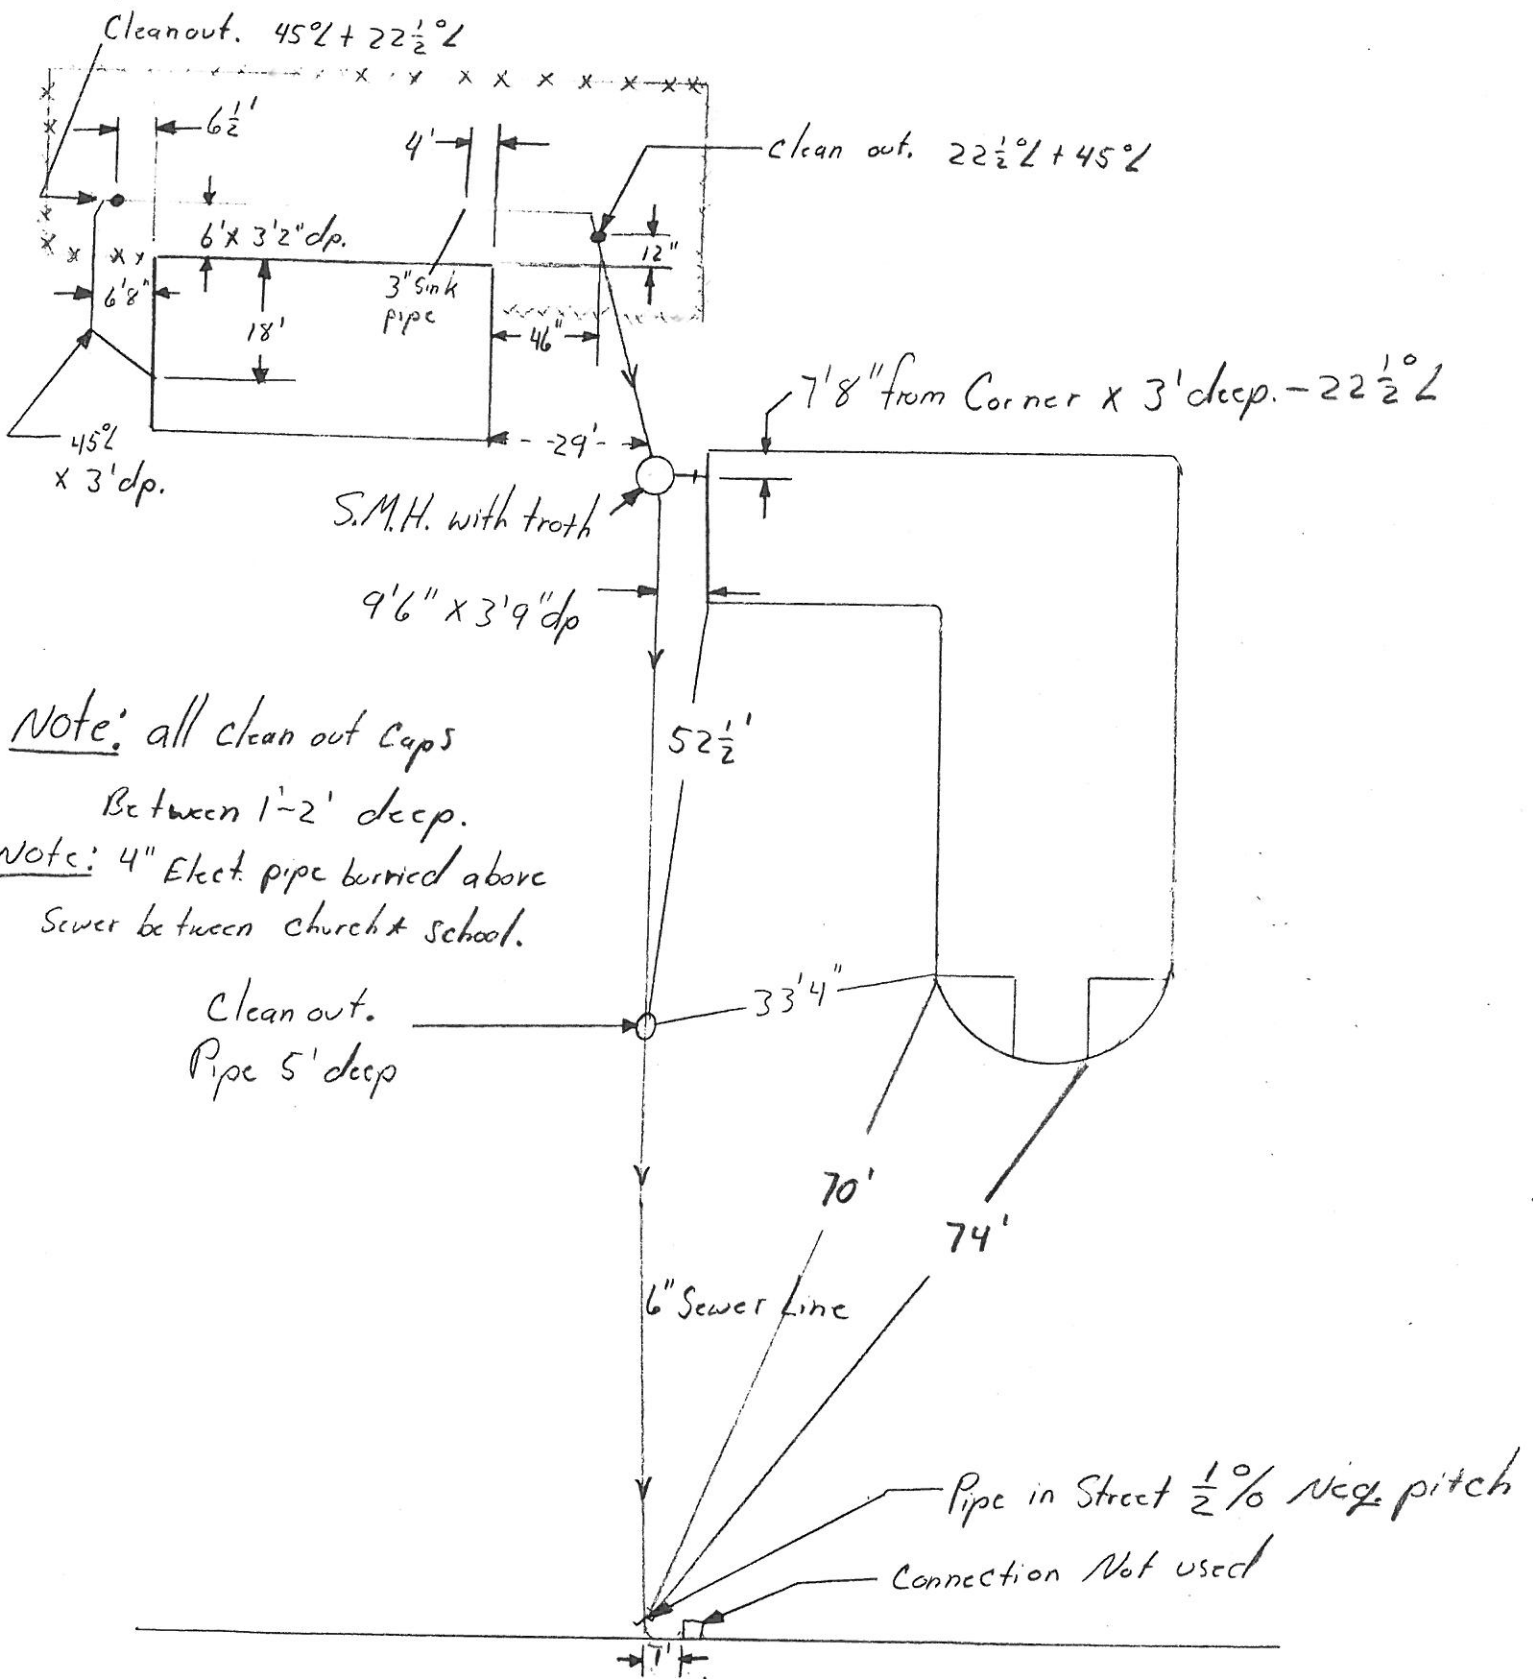 Cleanout. 45°L + 22 1/2°L
6 1/2'
4'
clean out. 22 1/2°L + 45°L
6' x 3'2" dp.
12"
6'8"
3" Sink
pipe
18'
46"
7'8" from Corner x 3' deep. - 22 1/2°L
29'
45°L
x 3' dp.
S.M.H. with troth
9'6" x 3'9" dp
52 1/2'
Note: all clean out Caps
Between 1'-2' deep.
Note: 4" Elect. pipe burried above
Sewer between church & school.
33'4"
Clean out.
Pipe 5' deep
70'
74'
6" Sewer Line
Pipe in Street 1/2 % Neg. pitch
Connection Not used
7'